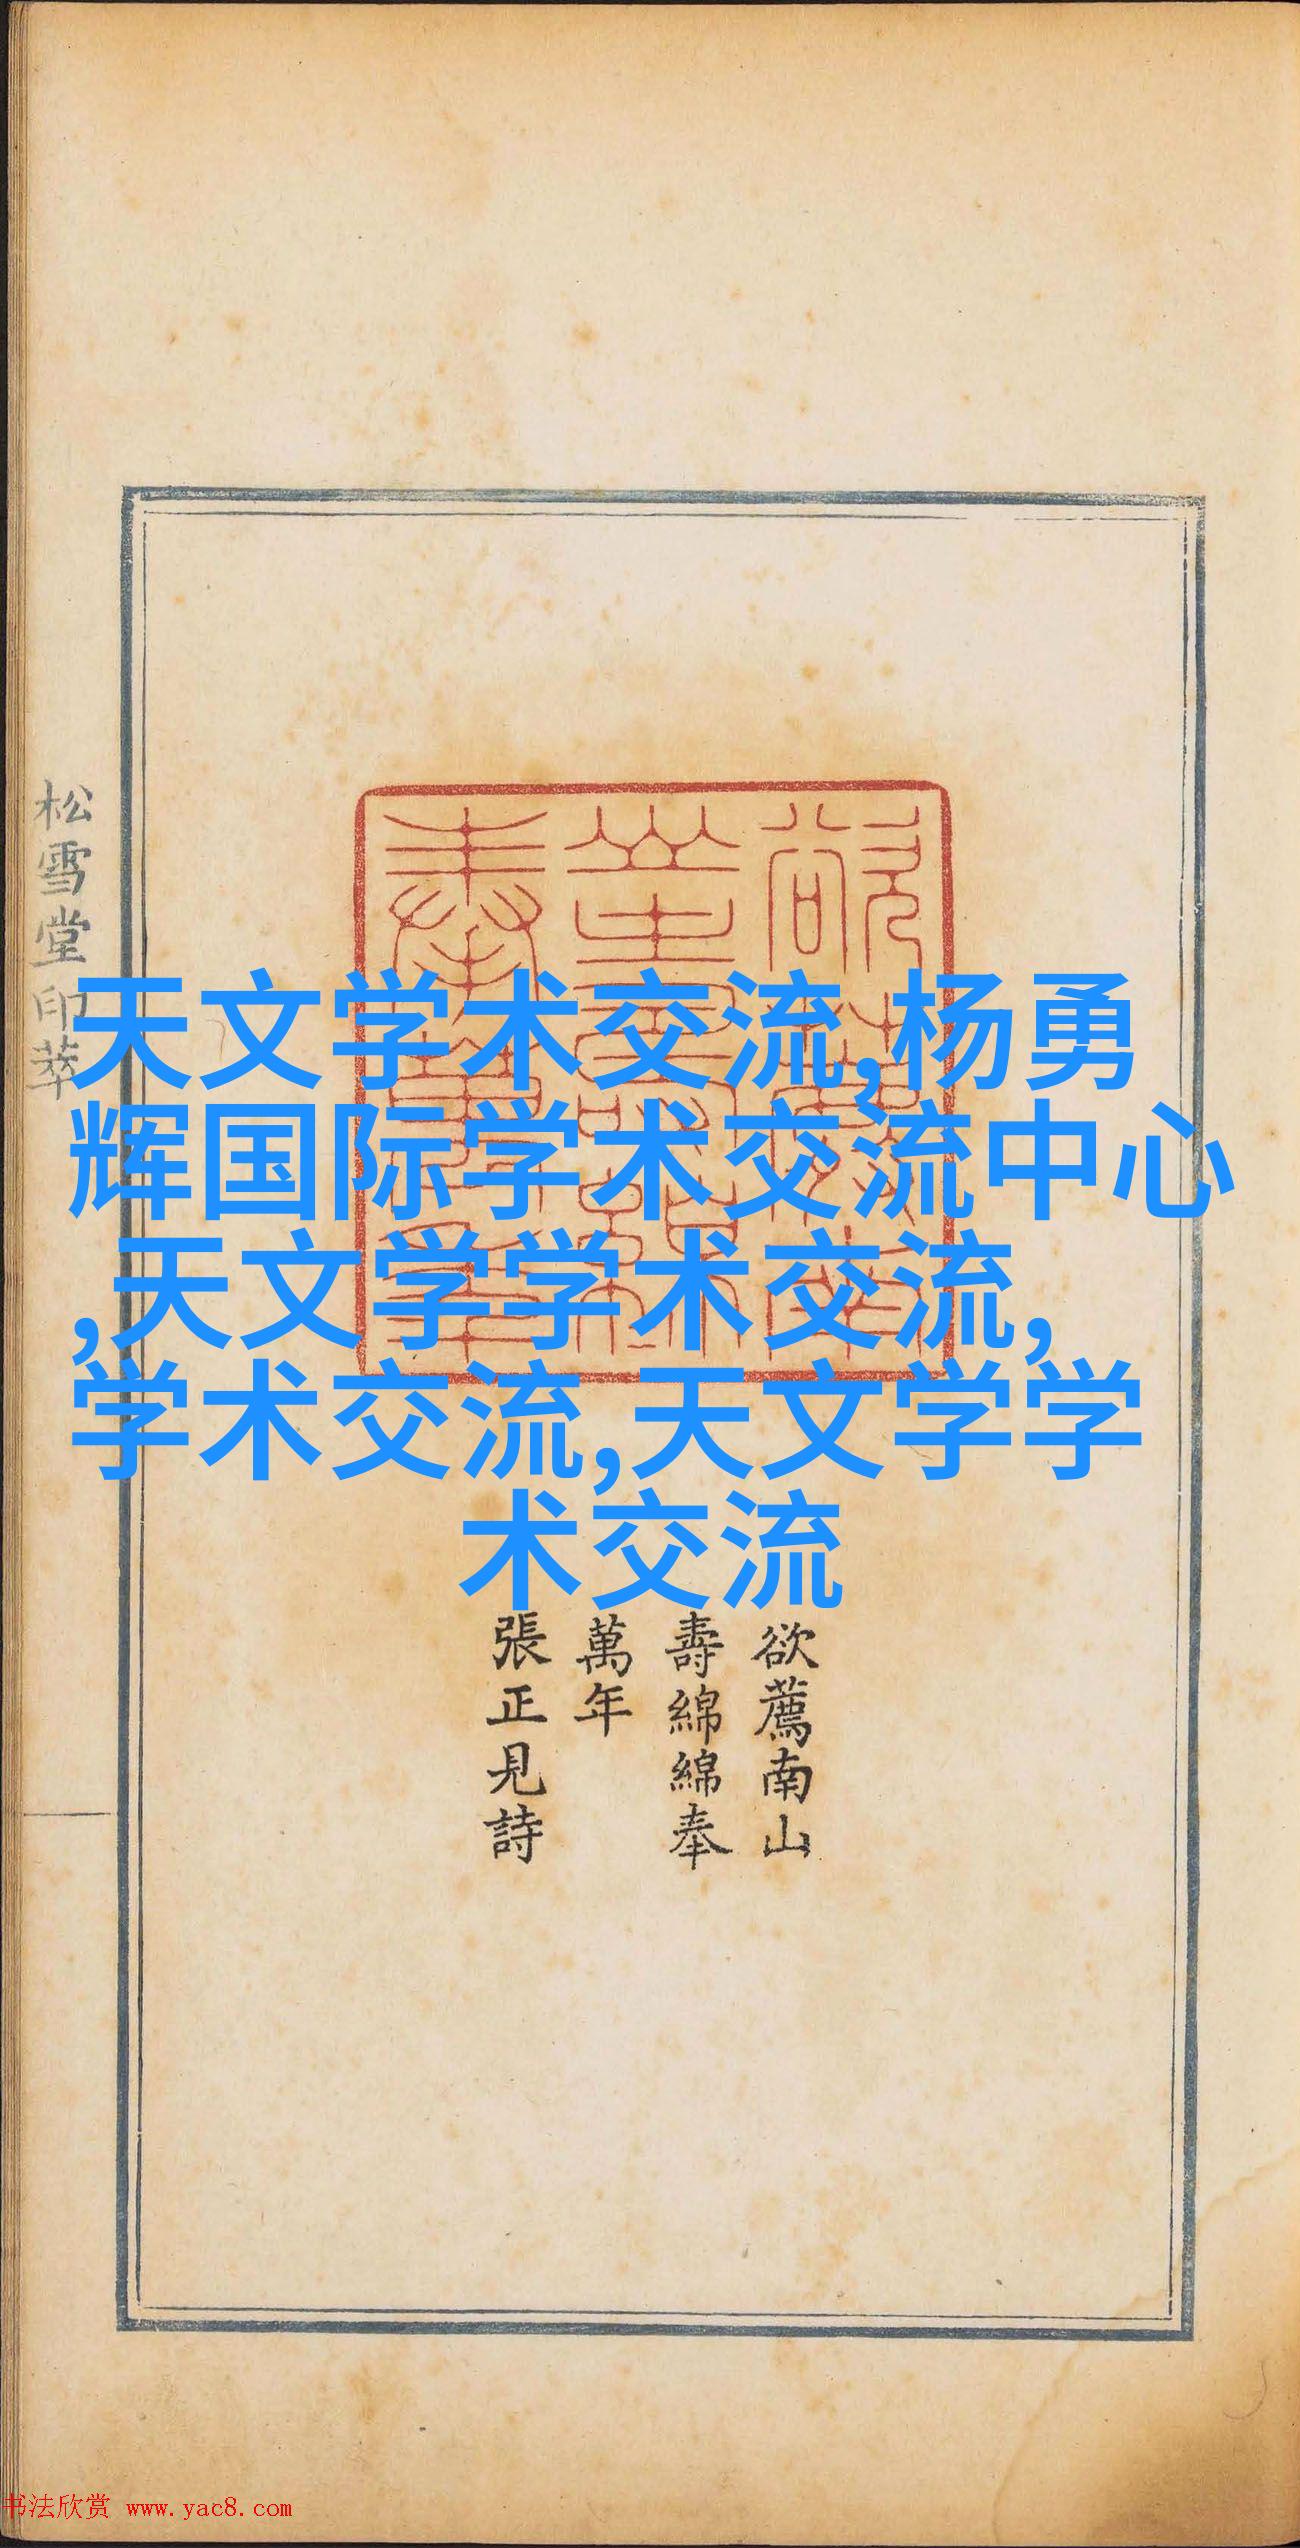 天文学术交流,杨勇
辉国际学术交流中心
,天文学学术交流,
学术交流,天文学学
术交流
欲薦南山
壽綿綿奉
萬年
張正見詩
松雪堂印萃
书法欣赏 www.yac8.com